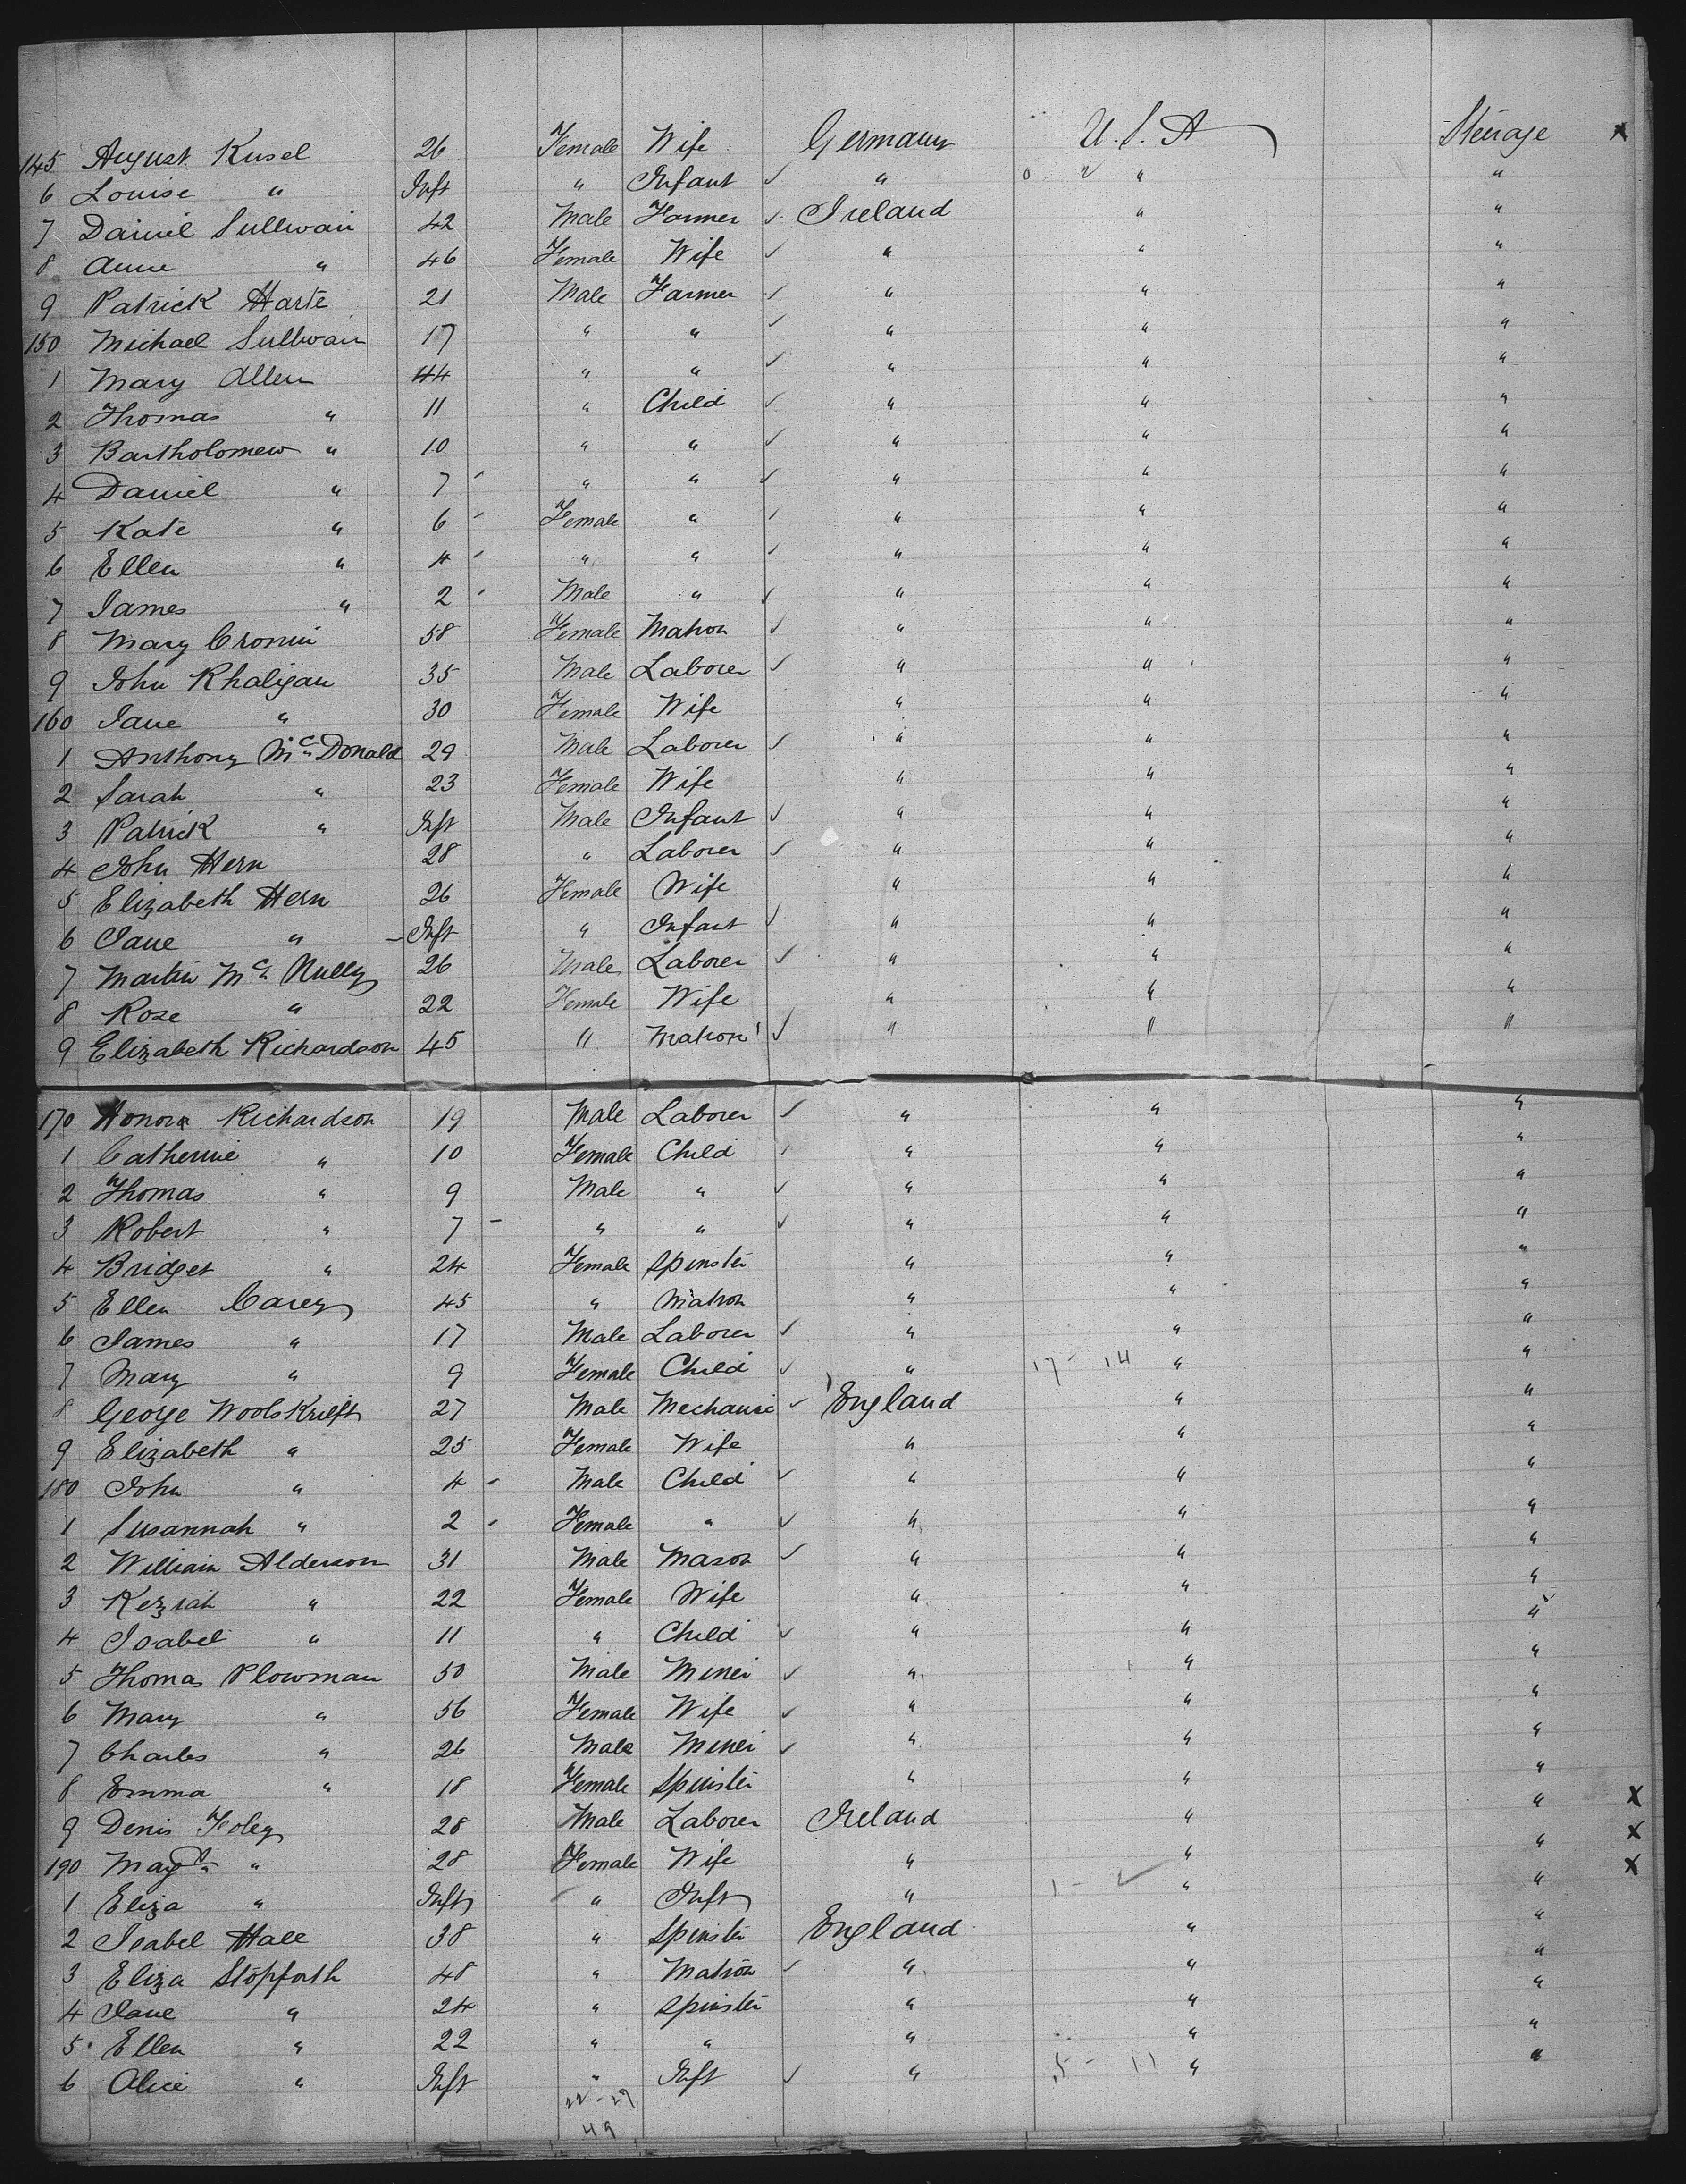 145 August Kusel 26 Female Wife Germany U.S.A Steerage X
6 Louise " Inft " Infant ✓ " " "
7 Daniel Sullivan 42 Male Farmer ✓ Ireland " "
8 Anne " 46 Female Wife ✓ " " "
9 Patrick Harte 21 Male Farmer ✓ " " "
150 Michael Sullivan 17 " " ✓ " " "
1 Mary Allen 44 " " ✓ " " "
2 Thomas " 11 " Child ✓ " " "
3 Bartholomew " 10 " " ✓ " " "
4 Daniel " 7 " " ✓ " " "
5 Kate " 6 Female " ✓ " " "
6 Ellen " 4 " " ✓ " " "
7 James " 2 Male " ✓ " " "
8 Mary Cronin 58 Female Matron ✓ " " "
9 John Rhaligan 35 Male Laborer ✓ " " "
160 Jane " 30 Female Wife " " "
1 Anthony McDonald 29 Male Laborer ✓ " " "
2 Sarah " 23 Female Wife " " "
3 Patrick " Inft Male Infant ✓ " " "
4 John Hern 28 " Laborer ✓ " " "
5 Elizabeth Hern 26 Female Wife " " "
6 Jane " Inft " Infant ✓ " " "
7 Martin Mc Nully 26 Male Laborer ✓ " " "
8 Rose " 22 Female Wife " " "
9 Elizabeth Richardson 45 " Matron ✓ " " "
170 Honora Richardson 19 Male Laborer ✓ " " "
1 Catherine " 10 Female Child ✓ " " "
2 Thomas " 9 Male " ✓ " " "
3 Robert " 7 - " " ✓ " " "
4 Bridget " 24 Female Spinster " " "
5 Ellen Carey 45 " Matron " " "
6 James " 17 Male Laborer ✓ " " "
7 Mary " 9 Female Child ✓ " 17 - 14 " "
8 George Woolskrieft 27 Male Mechanic ✓ England " "
9 Elizabeth " 25 Female Wife " " "
180 John " 4 - Male Child ✓ " " "
1 Susannah " 2 - Female " ✓ " " "
2 William Alderson 31 Male Mason ✓ " " "
3 Keziah " 22 Female Wife " " "
4 Isabel " 11 " Child ✓ " " "
5 Thomas Plowman 50 Male Miner ✓ " " "
6 Mary " 56 Female Wife ✓ " " "
7 Charles " 26 Male Miner ✓ " " "
8 Emma " 18 Female Spinster " " "
9 Denis Foley 28 Male Laborer Ireland " " X
190 Mary " 28 Female Wife " " " X
1 Eliza " Inft " Inft " 1 - ✓ " " X
2 Isabel Hall 38 " Spinster England " "
3 Eliza Stopforth 48 " Matron ✓ " " "
4 Jane " 24 " Spinster " " "
5 Ellen " 22 " " " " "
6 Alice " Inft " Inft ✓ " 5 - 11 " "
22 - 27
49